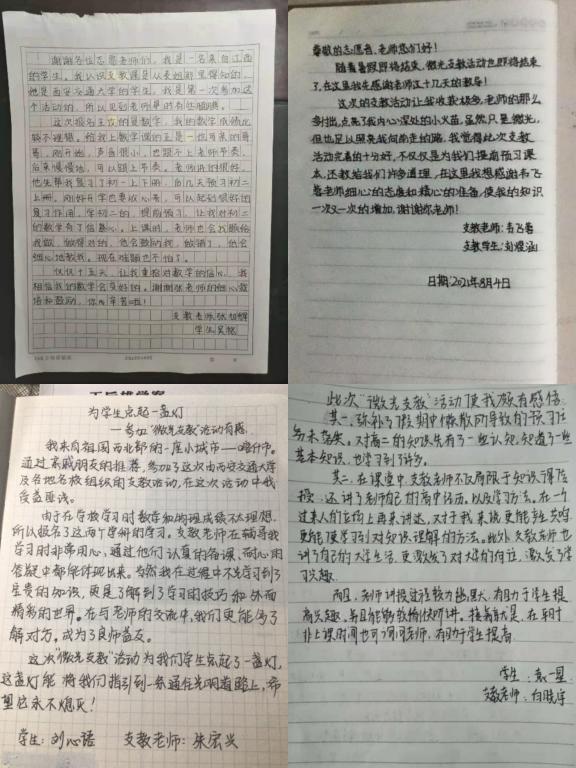 谢谢各位志愿老师们，我是一名来自江西
的学生。我认识支教课是从表姐那里得知的，
她是西安交通大学的学生。我是第一次参加这
个活动的，所以见到老师是时有些腼腆。
这次报名主攻的是数学，我的数学成绩比
较不理想。给我上数学课的正是一位可亲的哥
哥，刚开始，声音很小，也跟不上老师节奏，
后来慢慢地，可以跟上节奏。老师讲的很好，
他先帮我复习了初一上下册，后几天预习初二
上册。刚好开学也要收心考，可以起到很好的
复习作用。学初二的，提前预习，让我对初二
的数学有了信心。上课时，老师也会找题给
我做，做得对的，他会鼓励我，做错了，他会
细心地教我。现在难题也不怕了。
仅仅十五天，让我重拾对数学的信心，我
相信我的数学会更好的。谢谢张老师的细心教
语和鼓励，你们辛苦啦！
支教老师：张
学生：吴
尊敬的志愿者、老师您们好！
随着暑假即将结束，微光支教活动也即将结束
了，在这里我先感谢老师这十几天的教导！
这次的支教活动让我收获颇多，老师的那么
多付出，点亮了我内心深处的小火苗，虽然只是微光，
但也足以照亮我何尚走的路，我觉得此次支教
活动完善的十分好，不仅仅是为我们提前预习课
本，还教给我们许多道理，在这里我想感谢韦飞
老师细心的态度和精心的准备，使我的知识
一次又一次的增加，谢谢你老师！
支教老师：韦飞
支教学生：刘煜涵
日期：2021年8月4日
为学生点起一盏灯
——参加“微光支教”活动有感
我来自祖国西北部的一座小城市——喀什市。
通过亲戚朋友的推荐，参加了这次由西安交通大学
及各地名校组织的支教活动，在这次活动中我
受益匪浅。
由于在学校学习时数学和物理成绩不太理想，
所以报名了这两个学科的学习。支教老师在辅导我
学习时非常用心，通过他们认真的备课、耐心的
答疑中都能体现出来。当然我在过程中不光学习到了
宝贵的知识，更是了解到了学习的技巧和外面
精彩的世界。在与老师的交流中，我们更能够了
解对方。成为了良师益友。
这次“微光支教”活动为我们学生点起了一盏灯，
这盏灯能将我们指引到一条通往光明道路上，希
望它永不熄灭！
学生：刘心语 支教老师：朱宏兴
此次“微光支教”活动使我颇有感悟
其一，弥补了假期中懒散所导致的预习任
务未落实。对高二的知识先有了一些认知，知道了一些
基本知识，也学习到了许多。
其二，在课堂中，支教老师不仅局限于知识课的传
授，还讲了老师自己的高中经历，以及学习方法，在一个
过来人的立场上再来讲述，对于我来说更能产生共鸣
更能便学习到对知识理解的方法。此外支教老师也
讲了自己的大学生活，更激发了对大学的向往，激发了学
习兴趣
而且，老师讲授过程较为幽默，有助于学生提
高兴趣，并且能够较愉快听讲。接着就是，在平时
非上课时间也可询问老师，有助于学生提高
学生：袁一星
支教老师：白晓宇